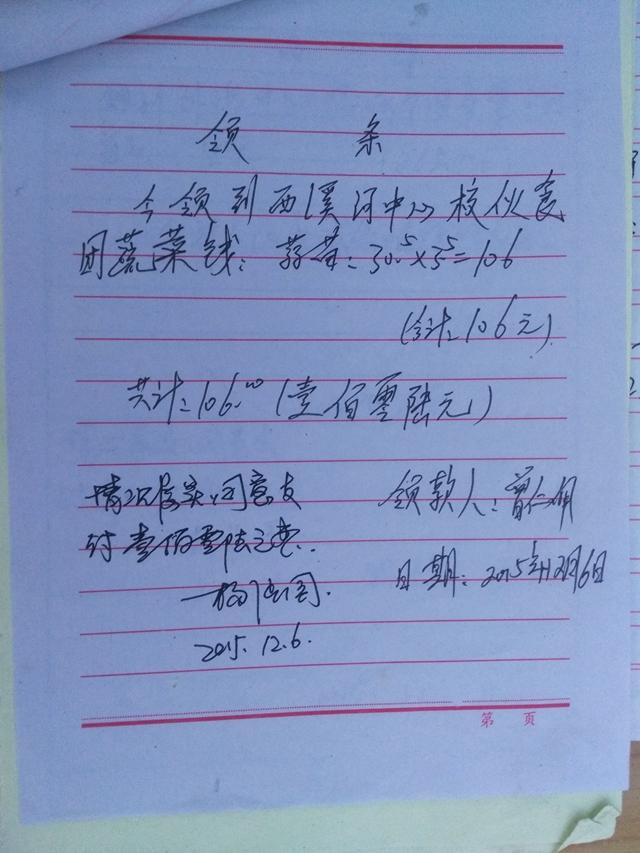 领 条
今领到西溪河中心校伙食
团蔬菜钱：蒜苗：30.5×3.5=106
(合计：106元)
共计：106.00(壹佰零陆元)
情况属实，同意支
付壹佰零陆元整.
领款人：曾仁明
日期：2015年12月6日
2015.12.6.
第 页